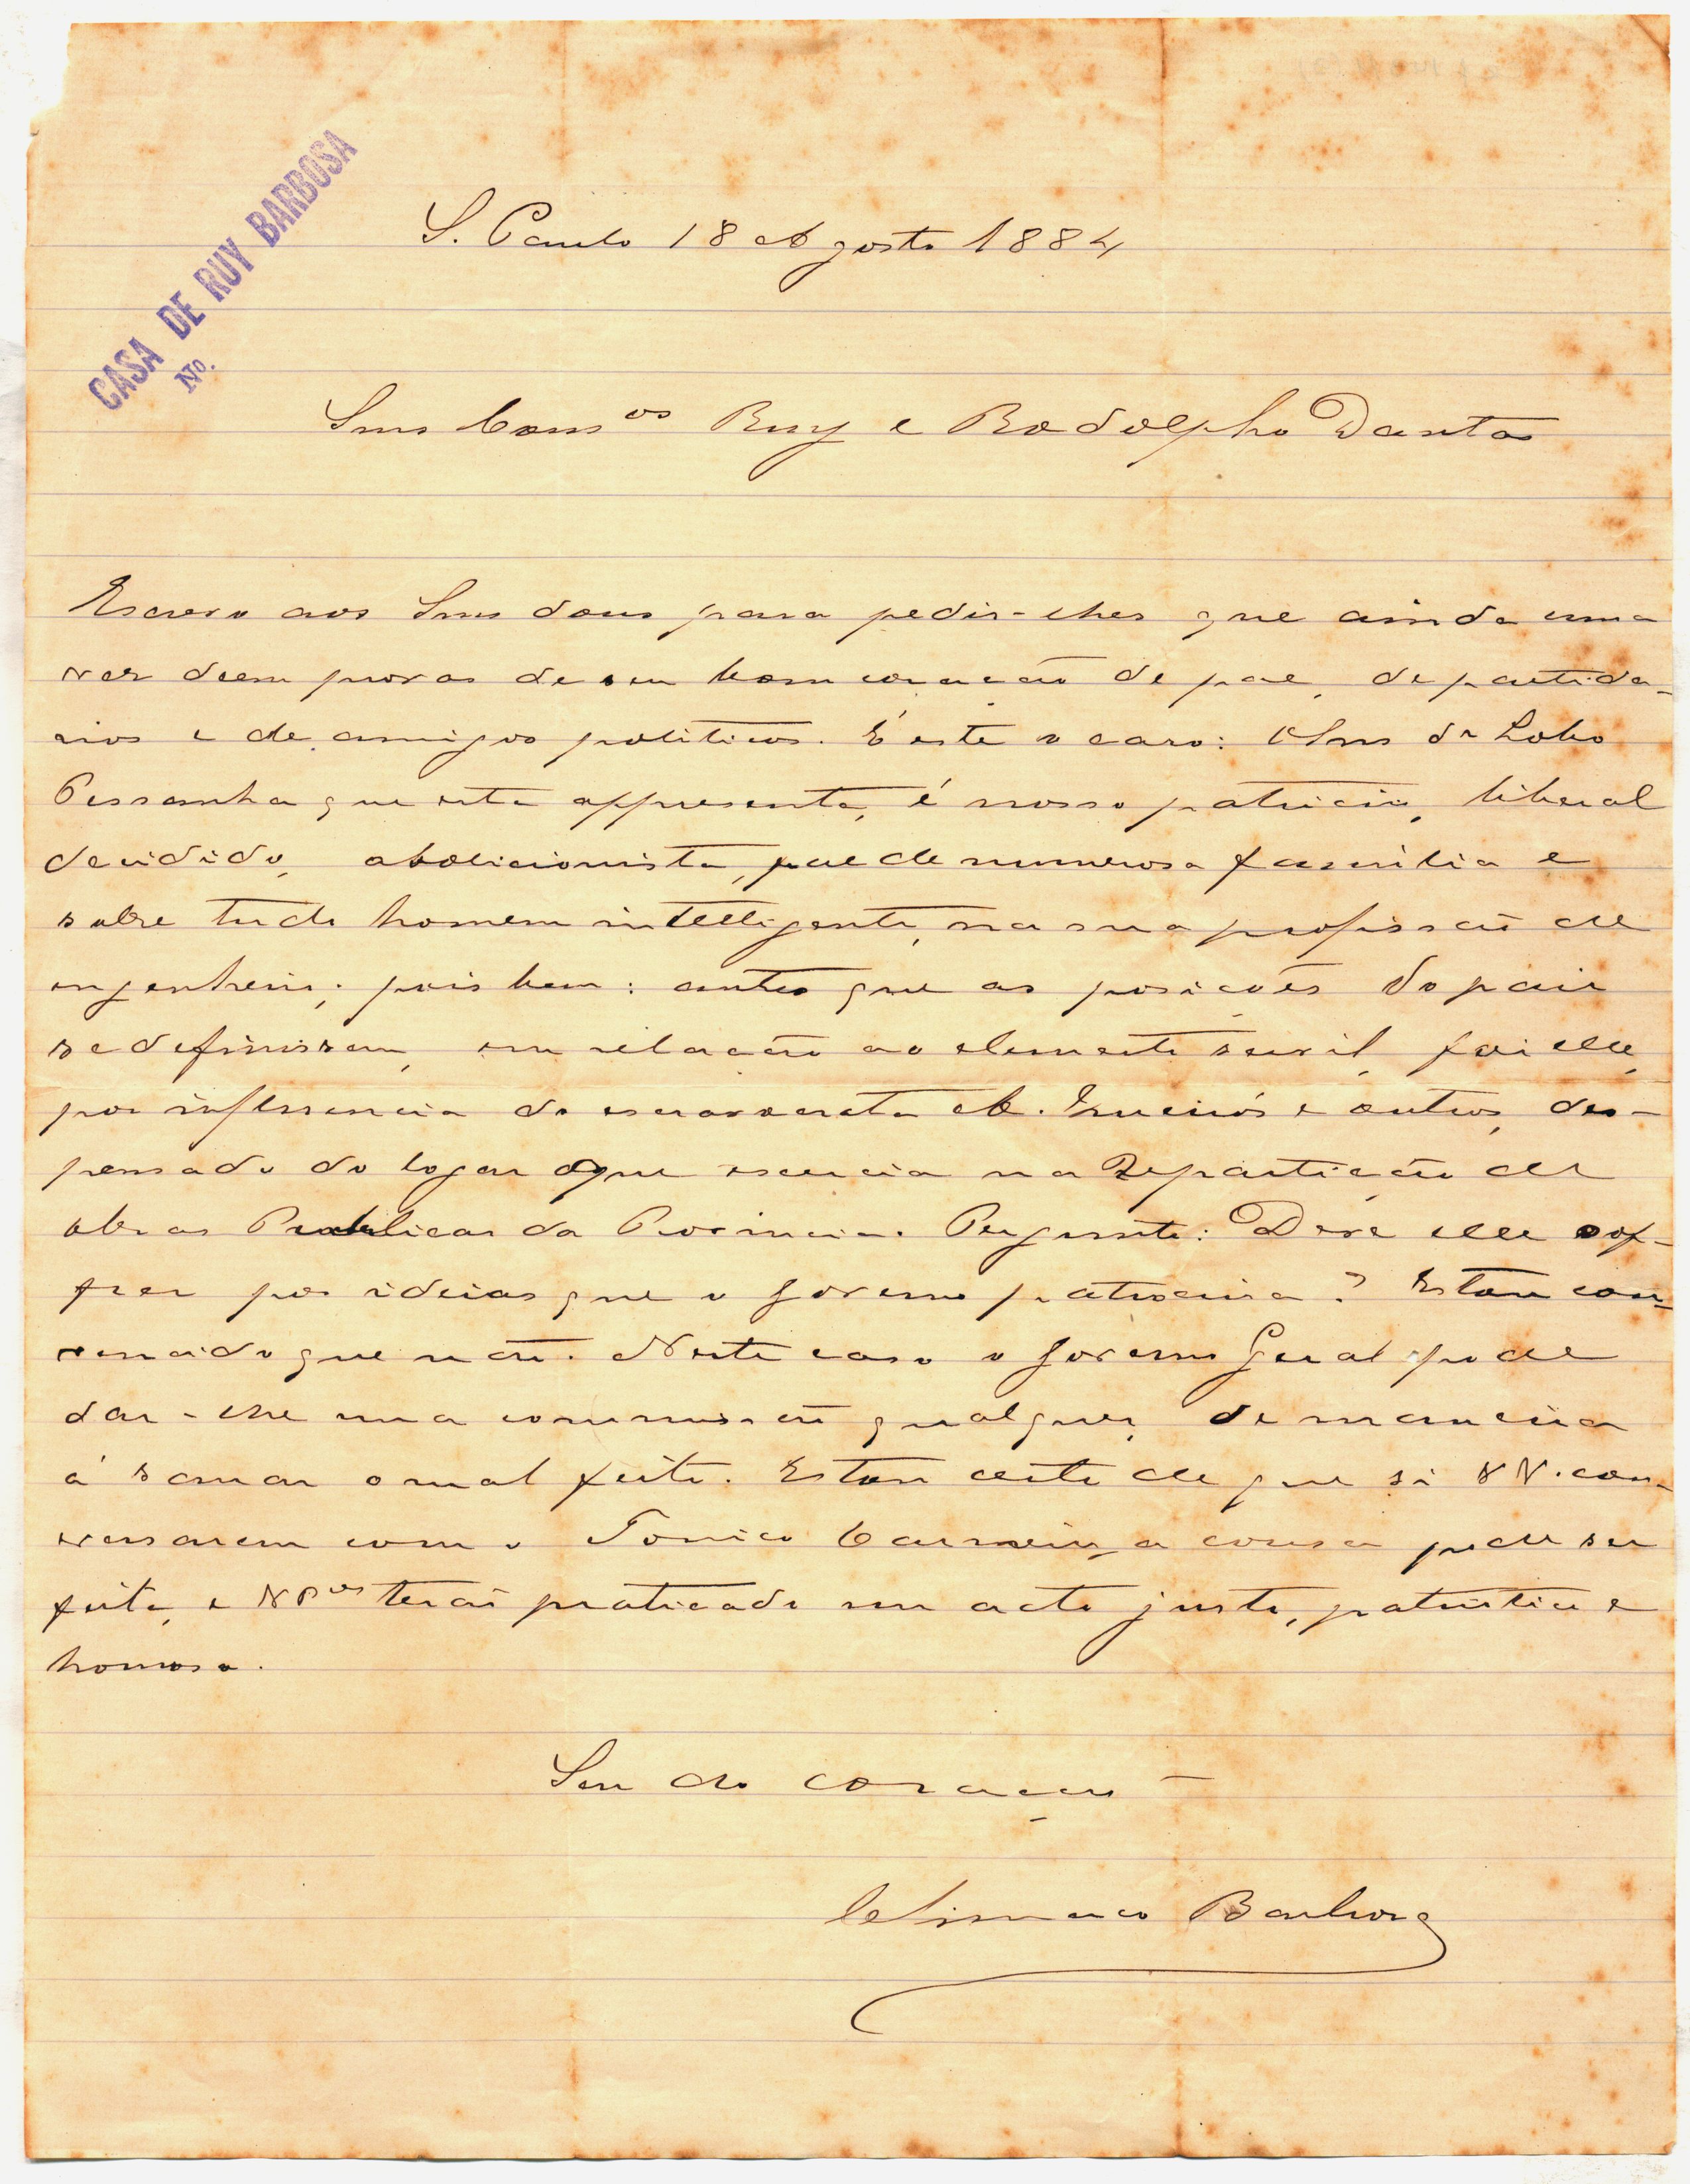 CASA DE RUY BARBOSA
Nº.
S. Paulo 18 Agosto 1884
Snrs Cons.os Ruy e Rodolpho Dantas
Escrevo aos Snrs dous para pedir-lhes que ainda uma
vez deem provas de seu bom coração de pae, de partida-
rios e de amigos politicos. É este o caso: O Snr dr Lobo
Pessanha que esta appresenta, é nosso patricio, liberal
decidido, abolicionista, pae de numerosa familia e
sobre tudo homem intelligente, na sua profissão de
engenheiro; pois bem: antes que as posições do paiz
se definissem, em relação ao elemento servil, foi elle,
por influencia do escravocrata A. Queirós e outros, des-
pensado do logar que exercia na Repartição de
obras Publicas da Provincia. Pergunto: Deve elle sof-
frer por ideias que o governo patrocina? Estou con-
vencido que não. Neste caso o governo Geral pode
dar-lhe uma commissão qualquer, de maneira
á sanar o mal feito. Estou certo de que si VV. con-
versarem com o Tonico Carneiro, a cousa pode ser
feita, e terão praticado um acto justo, patriotico e
honroso.
Seu do coração
Climaco Barbosa